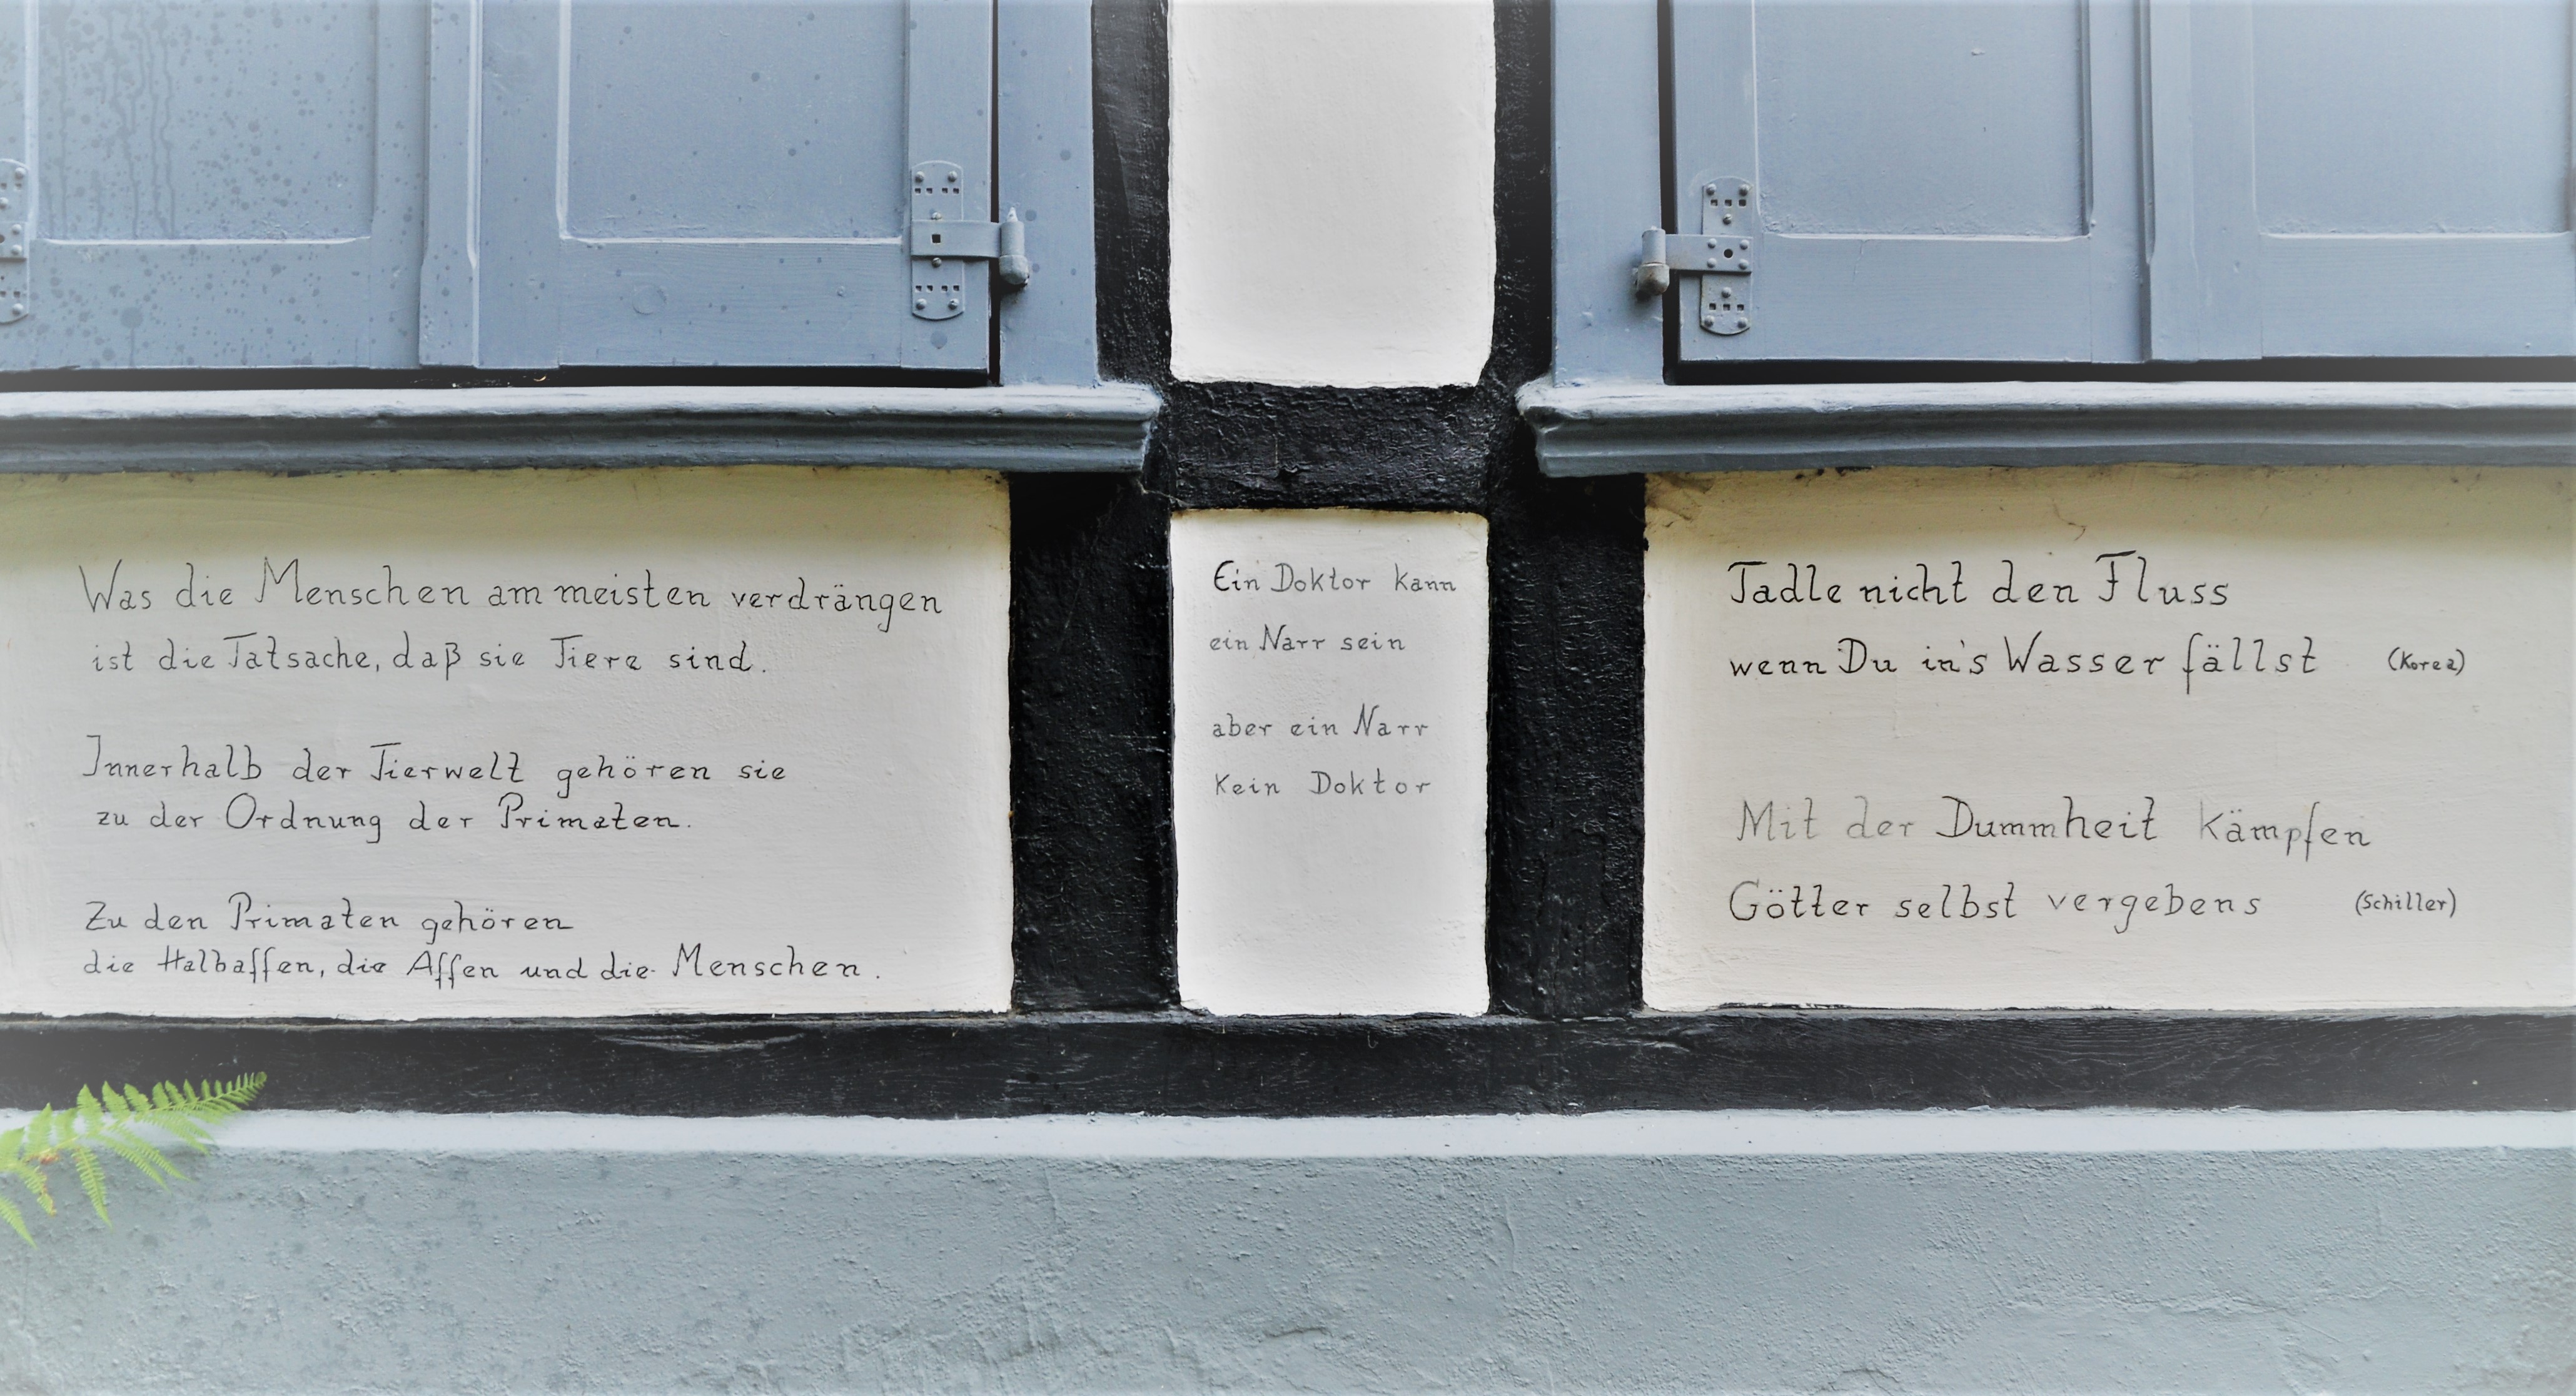 Was die Menschen am meisten verdrängen
ist die Tatsache, daß sie Tiere sind.
Innerhalb der Tierwelt gehören sie
zu der Ordnung der Primaten.
Zu den Primaten gehören
die Halbaffen, die Affen und die Menschen.
Ein Doktor kann
ein Narr sein
aber ein Narr
kein Doktor
Tadle nicht den Fluss
wenn Du in's Wasser fällst (Korea)
Mit der Dummheit kämpfen
Götter selbst vergebens (Schiller)